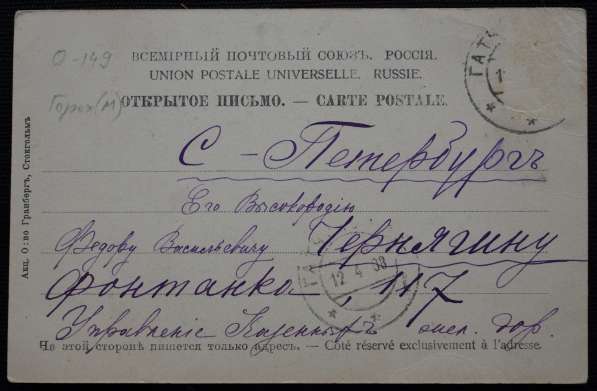 О-149
ВСЕМІРНЫЙ ПОЧТОВЫЙ СОЮЗЪ. РОССІЯ.
UNION POSTALE UNIVERSELLE. RUSSIE.
ОТКРЫТОЕ ПИСЬМО. — CARTE POSTALE.
ГАТ
С-Петербургъ
Его Высокородію
Федору Васильевичу Чернягину
12 4 08
Фонтанка, 117
Управленіе Казенныхъ жел. дор.
На этой сторонѣ пишется только адресъ. — Côté réservé exclusivement à l'adresse.
Акц. О-во Гранбергъ, Стокгольмъ